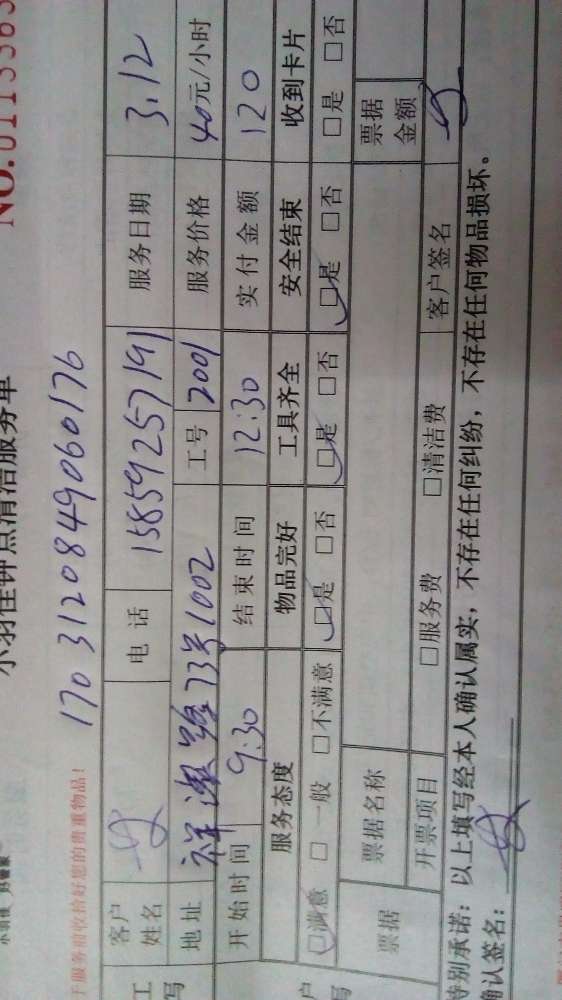 NO.0113363
小羽佳钟点清洁服务单
170 3120849060176
于服务前收拾好您的贵重物品!
客户姓名 电话 15859257191 服务日期 3.12
地址 祥 路73号1002 工号 2001 服务价格 40元/小时
开始时间 9:30 结束时间 12:30 实付金额 120
服务态度 物品完好 工具齐全 安全结束 收到卡片
□满意 □一般 □不满意 □是 □否 □是 □否 □是 □否 □是 □否
票据 票据名称 票据金额
开票项目 □服务费 □清洁费 客户签名
特别承诺:以上填写经本人确认属实,不存在任何纠纷,不存在任何物品损坏。
确认签名: